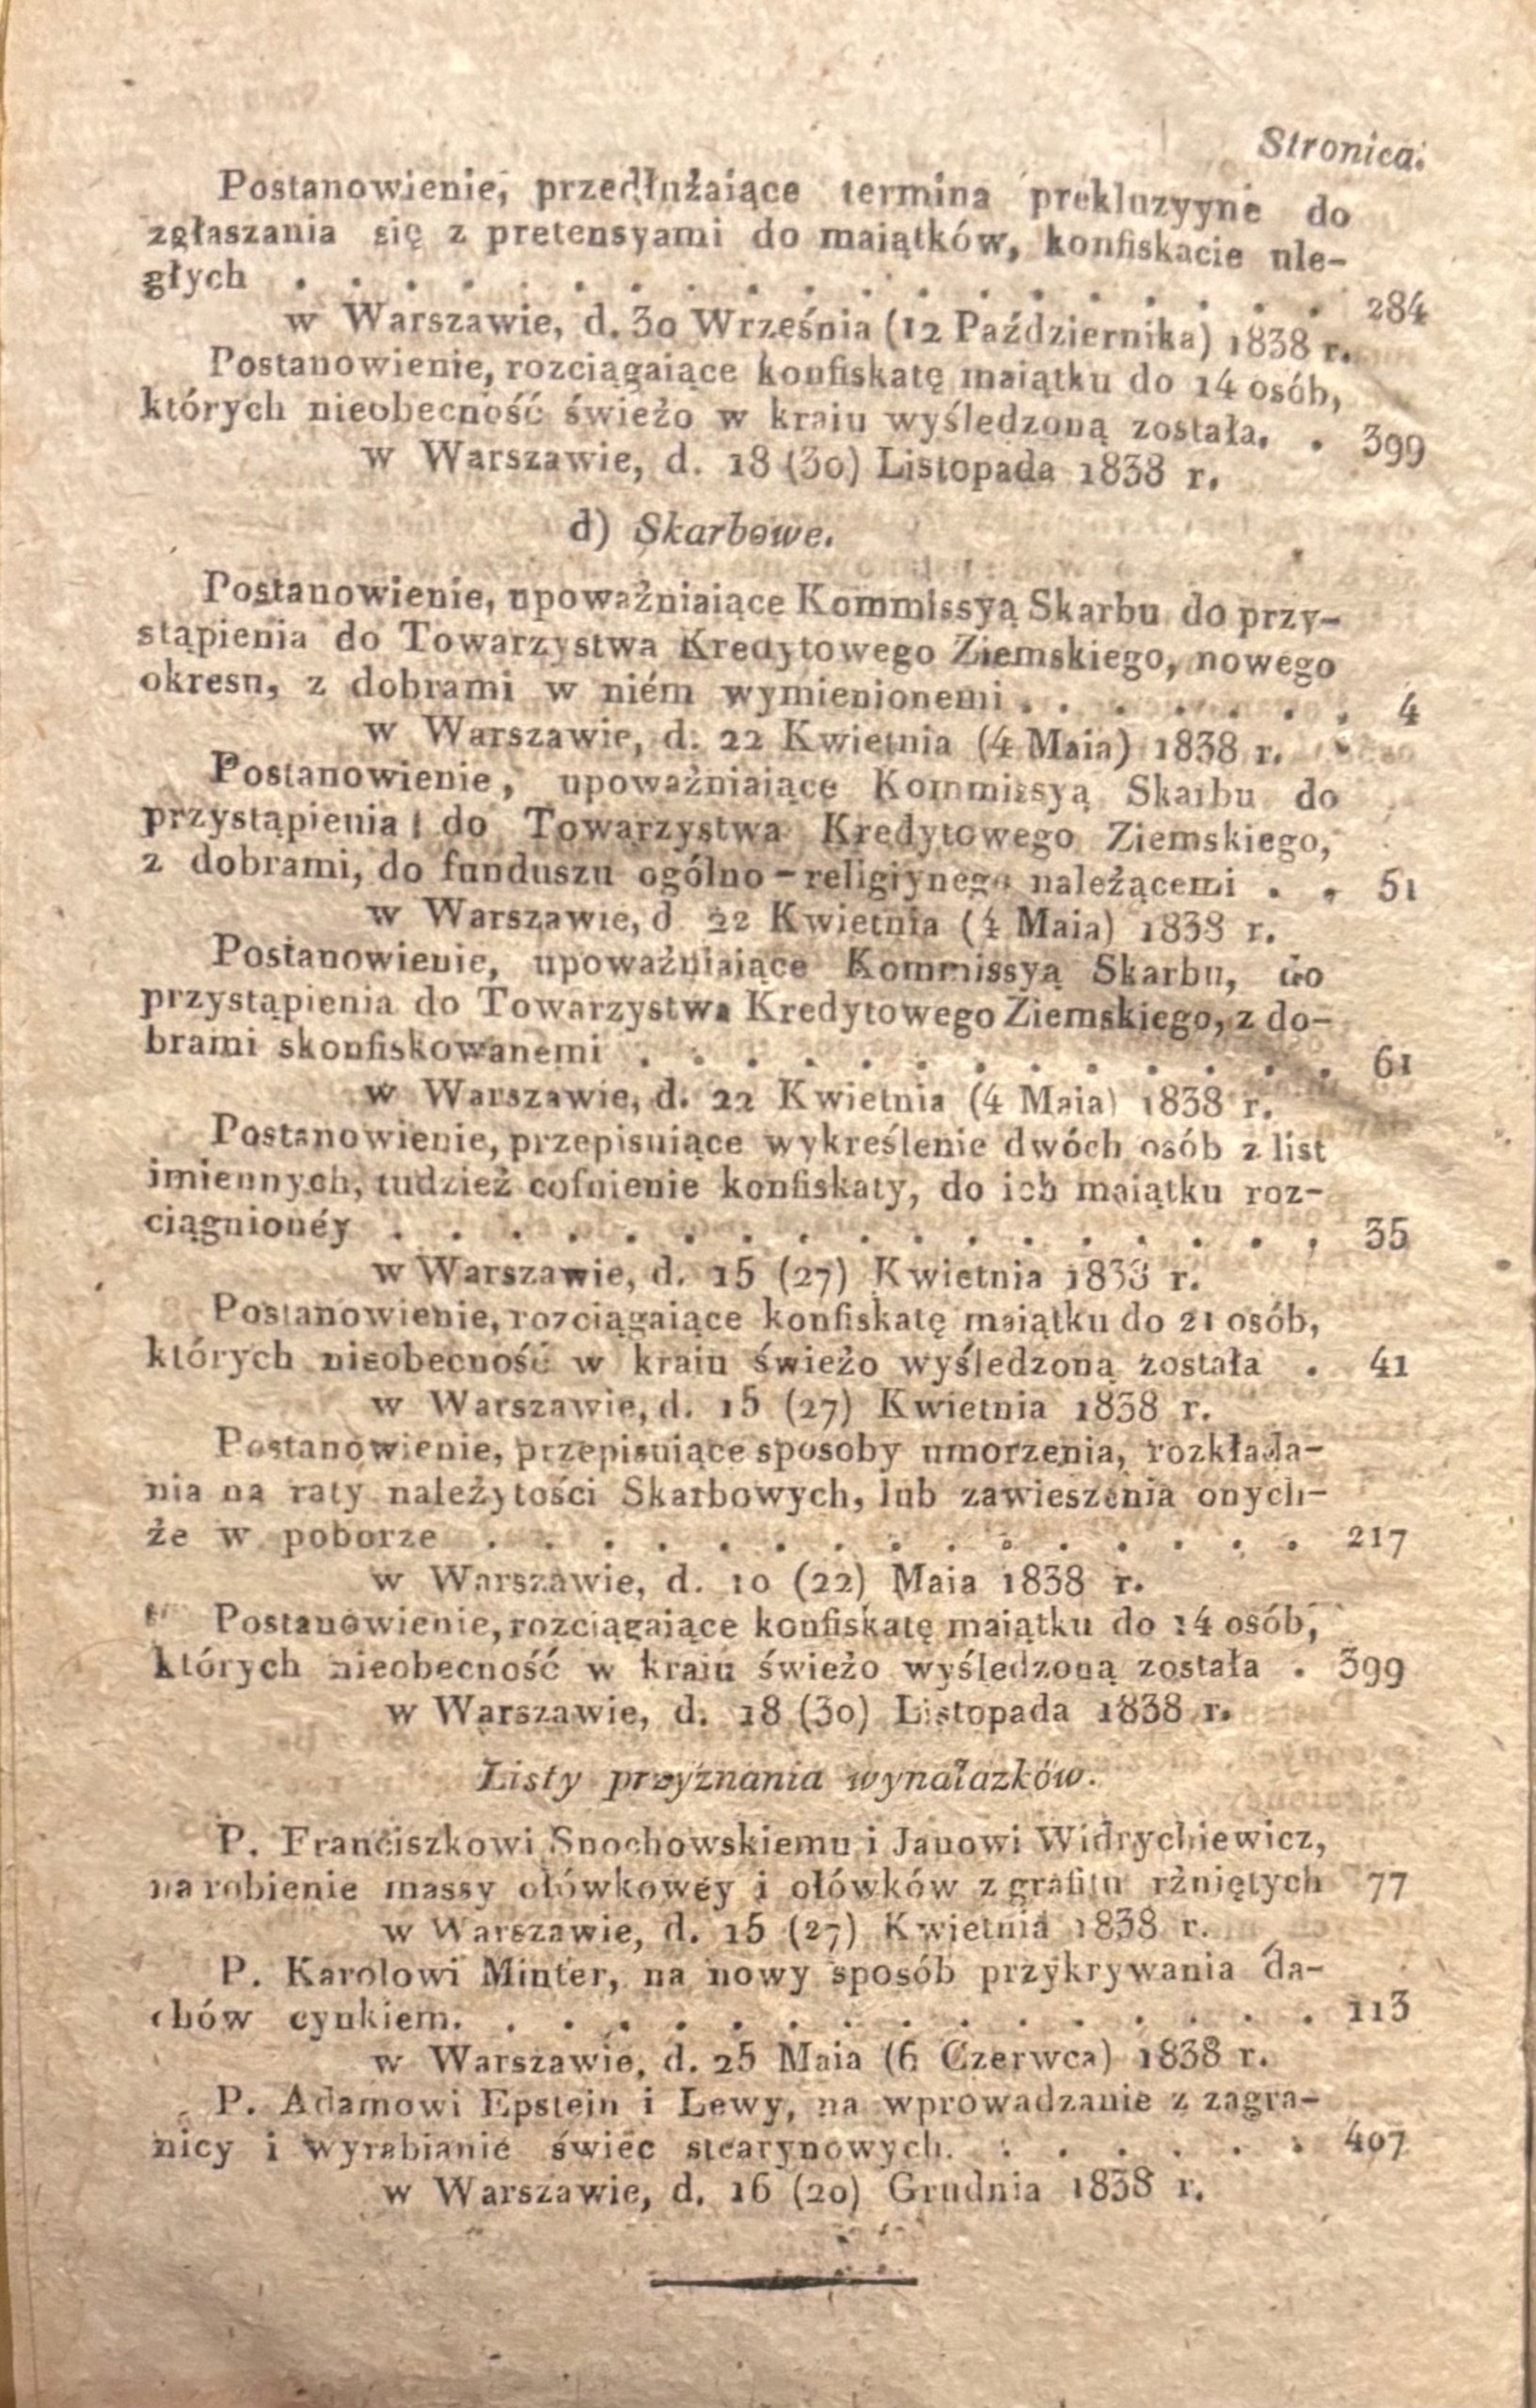 Stronica.
Postanowienie, przedłużaiące termina prekluzyyne do
zgłaszania się z pretensyami do maiątków, konfiskacie ule-
głych . . . . . . . . . . . . . . . . . . . 284
w Warszawie, d. 30 Września (12 Października) 1838 r.
Postanowienie, rozciągaiące konfiskatę maiątku do 14 osób,
których nieobecność świeżo w kraiu wyśledzoną została. . 399
w Warszawie, d. 18 (30) Listopada 1838 r.
d) Skarbowe.
Postanowienie, upoważniaiące Kommissyą Skarbu do przy-
stąpienia do Towarzystwa Kredytowego Ziemskiego, nowego
okresu, z dobrami w niém wymienionemi . . . . . . . 4
w Warszawie, d. 22 Kwietnia (4 Maia) 1838 r.
Postanowienie, upoważniaiące Kommissyą Skarbu do
przystąpienia do Towarzystwa Kredytowego Ziemskiego,
z dobrami, do funduszu ogólno-religiynego należącemi . . 51
w Warszawie, d 22 Kwietnia (4 Maia) 1838 r.
Postanowienie, upoważniaiące Kommissyą Skarbu, do
przystąpienia do Towarzystwa Kredytowego Ziemskiego, z do-
brami skonfiskowanemi . . . . . . . . . . . . . 61
w Warszawie, d. 22 Kwietnia (4 Maia) 1838 r.
Postanowienie, przepisuiące wykreślenie dwóch osób z list
imiennych, tudzież cofnienie konfiskaty, do ich maiątku roz-
ciągnionéy . . . . . . . . . . . . . . . . . 35
w Warszawie, d. 15 (27) Kwietnia 1838 r.
Postanowienie, rozciągaiące konfiskatę maiątku do 21 osób,
których nieobecność w kraiu świeżo wyśledzoną została . 41
w Warszawie, d. 15 (27) Kwietnia 1838 r.
Postanowienie, przepisuiące sposoby umorzenia, rozkłada-
nia na raty należytości Skarbowych, lub zawieszenia onych-
że w poborze . . . . . . . . . . . . . . . 217
w Warszawie, d. 10 (22) Maia 1838 r.
Postanowienie, rozciągaiące konfiskatę maiątku do 14 osób,
których nieobecność w kraiu świeżo wyśledzoną została . 399
w Warszawie, d. 18 (30) Listopada 1838 r.
Listy przyznania wynalazków.
P. Franciszkowi Snochowskiemu i Janowi Widrychiewicz,
na robienie massy ołówkowéy i ołówków z grafitu rżniętych 77
w Warszawie, d. 15 (27) Kwietnia 1838 r.
P. Karolowi Minter, na nowy sposób przykrywania da-
chów cynkiem. . . . . . . . . . . . . . . . 113
w Warszawie, d. 25 Maia (6 Czerwca) 1838 r.
P. Adamowi Epstein i Lewy, na wprowadzanie z zagra-
nicy i wyrabianie świec stearynowych. . . . . . . 407
w Warszawie, d. 16 (20) Grudnia 1838 r.